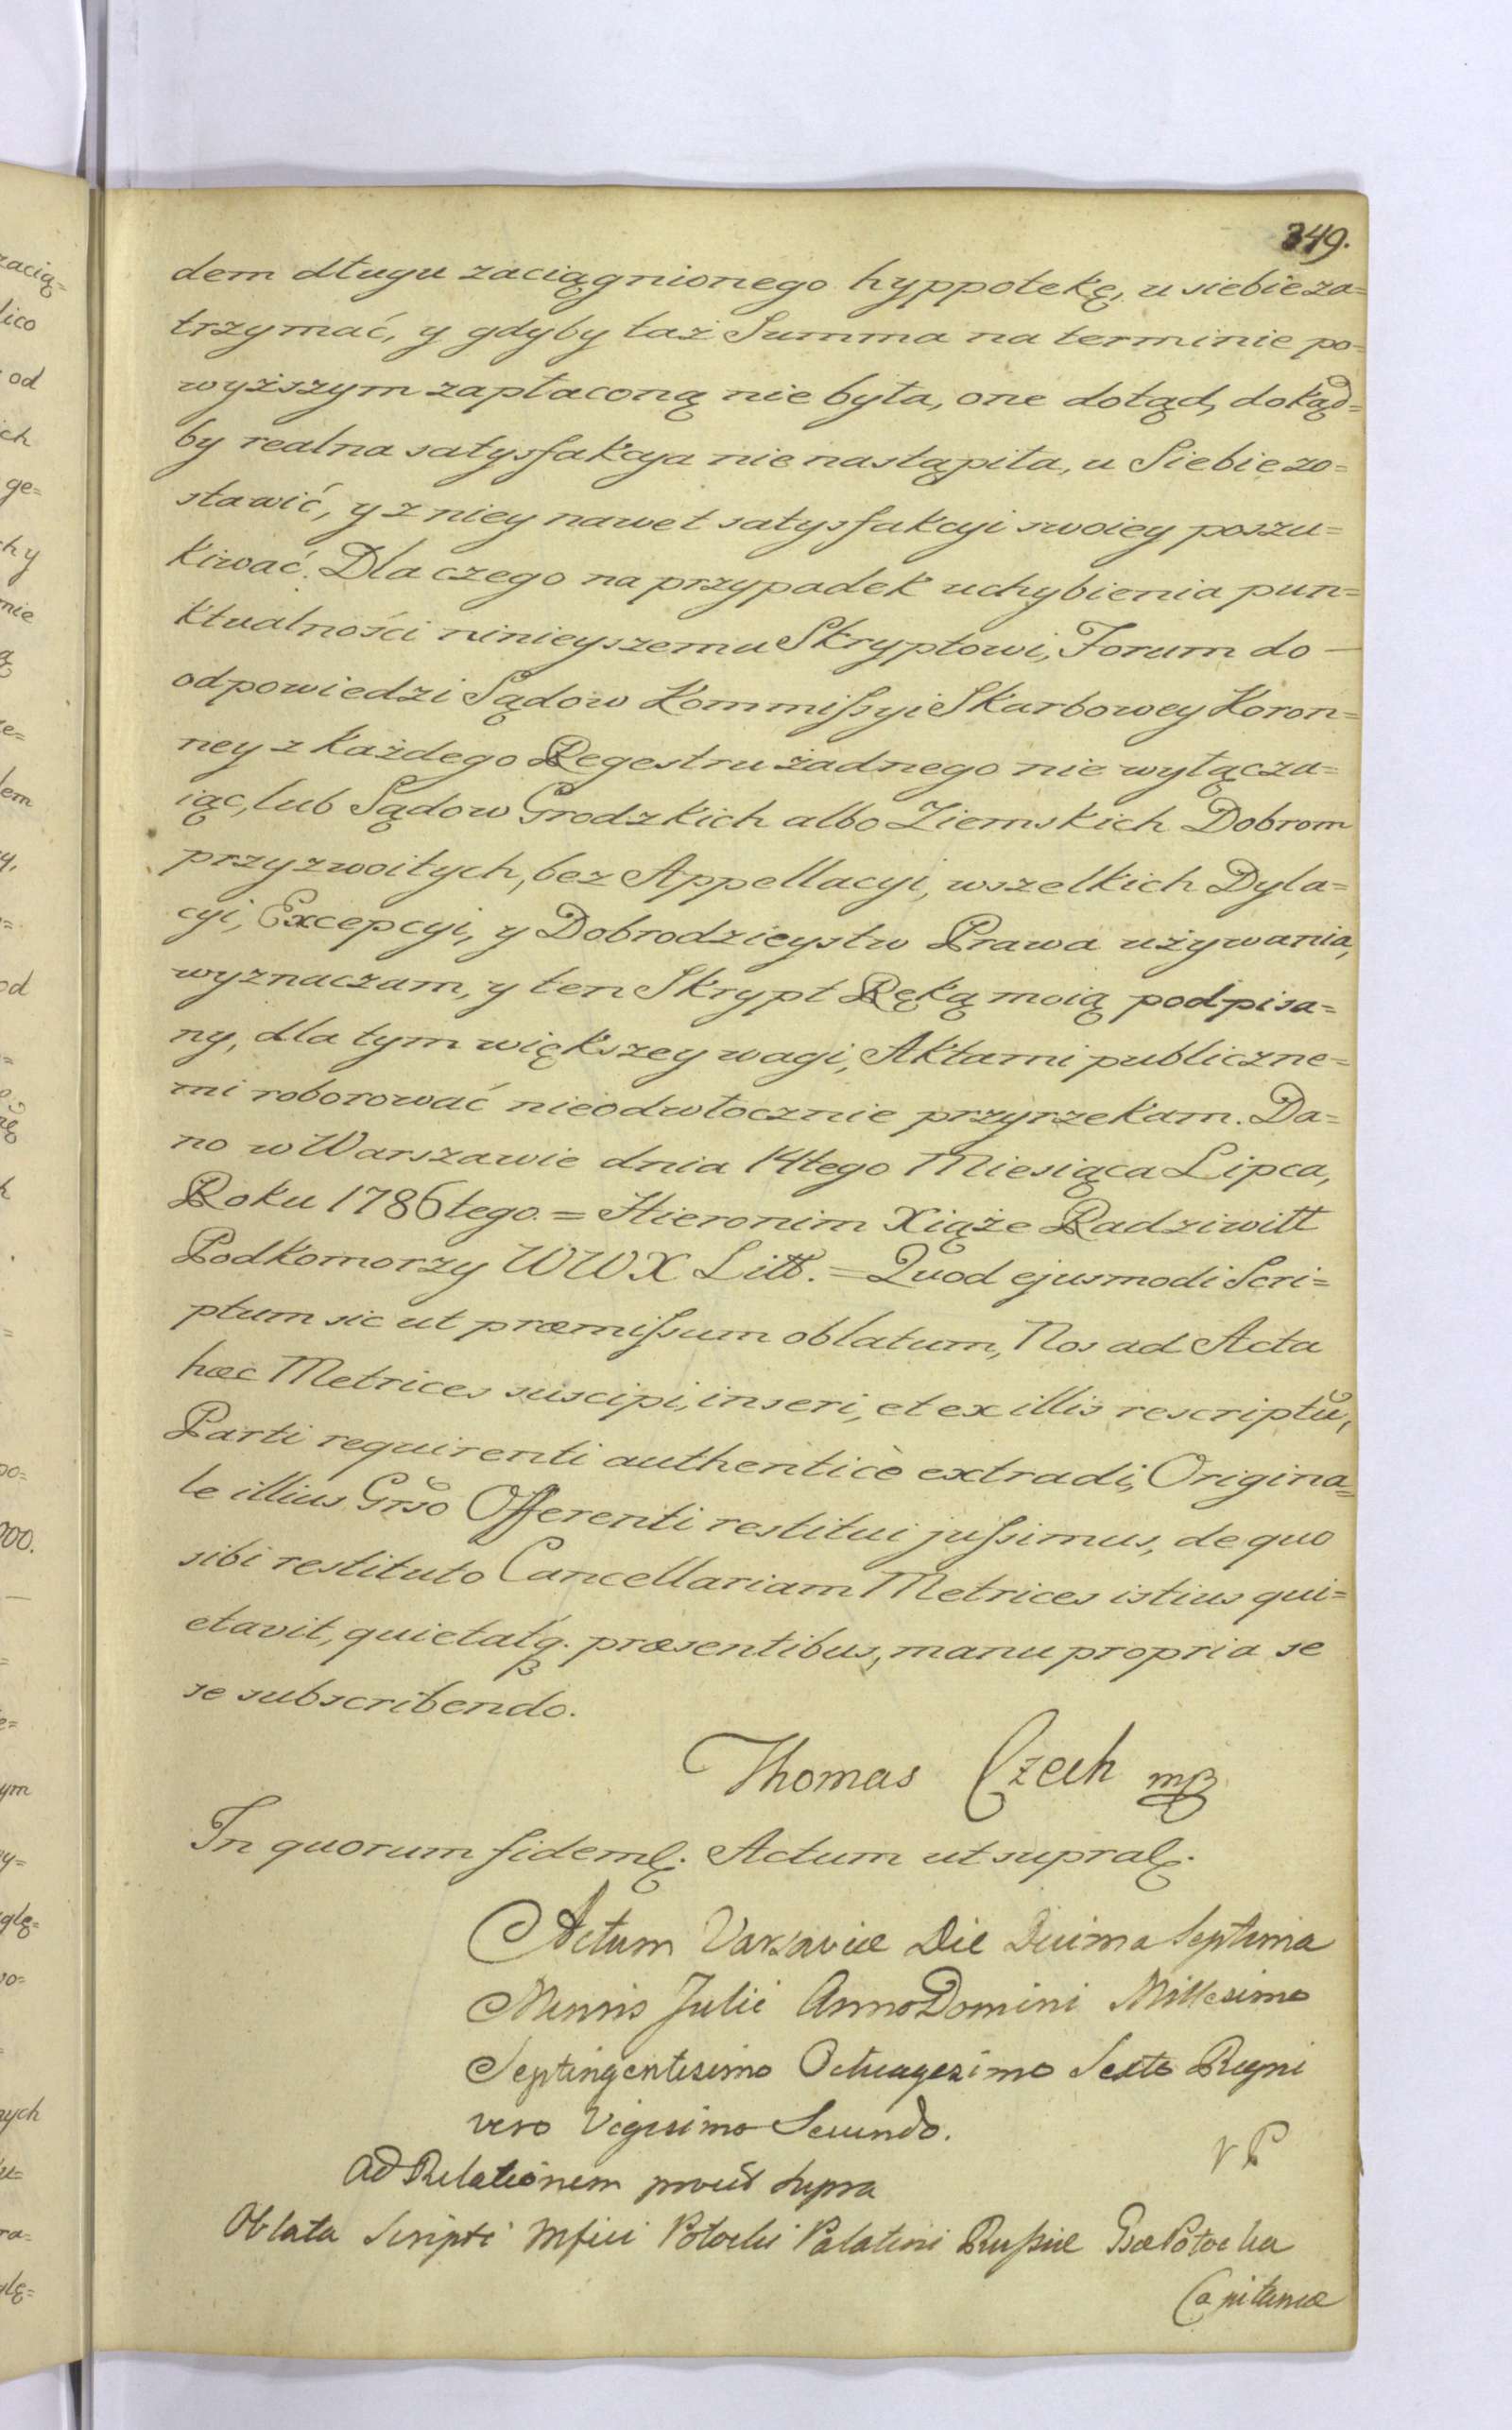 349.
dem długu zaciągnionego hyppotekę, u siebie za=
trzymać, y gdyby taż Summa na terminie po=
wyższym zapłaconą nie była, one dotąd, dokąd=
by realna satysfakcya nie nastąpiła, u Siebie zo=
stawić, y z niey nawet satysfakcyi swoiey poszu=
kiwać. Dla czego na przypadek uchybienia pun=
ktualności ninieyszemu Skryptowi, Forum do —
odpowiedzi Sądow Kommissyi Skarbowey Koron=
ney z każdego Regestru żadnego nie wyłącza=
iąc, lub Sądow Grodzkich albo Ziemskich Dobrom
przyzwoitych, bez Appellacyi, wszelkich Dyla=
cyi, Excepcyi, y Dobrodzieystw Prawa używania,
wyznaczam, y ten Skrypt Ręką moią podpisa=
ny, dla tym większey wagi, Aktami publiczne=
mi roborować nieodwłocznie przyrzekam. Da=
no w Warszawie dnia 14tego Miesiąca Lipca,
Roku 1786tego. = Hieronim Xiąże Radziwiłł
Podkomorzy WWX Litt. = Quod ejusmodi Scri=
ptum sic ut præmissum oblatum, Nos ad Acta
hæc Metrices suscipi, inseri, et ex illis rescriptũ,
Parti requirenti authenticè extradi, Origina=
le illius Grso Offerenti restitui jussimus, de quo
sibi restituto Cancellariam Metrices istius qui=
etavit, quietatq. præsentibus, manu propria se
se subscribendo.
Thomas Czech mp
In quorum fidem. Actum ut supra.
Actum Varsaviæ Die Decima Septima
Mensis Julii Anno Domini Millesimo
Septingentesimo Octuagesimo Sexto Regni
vero Vigesimo Secundo.
VP
Ad Relationem prout supra
Oblata Scripti Mfici Potocki Palatini Russiæ Gsæ Potocka
Capitanea